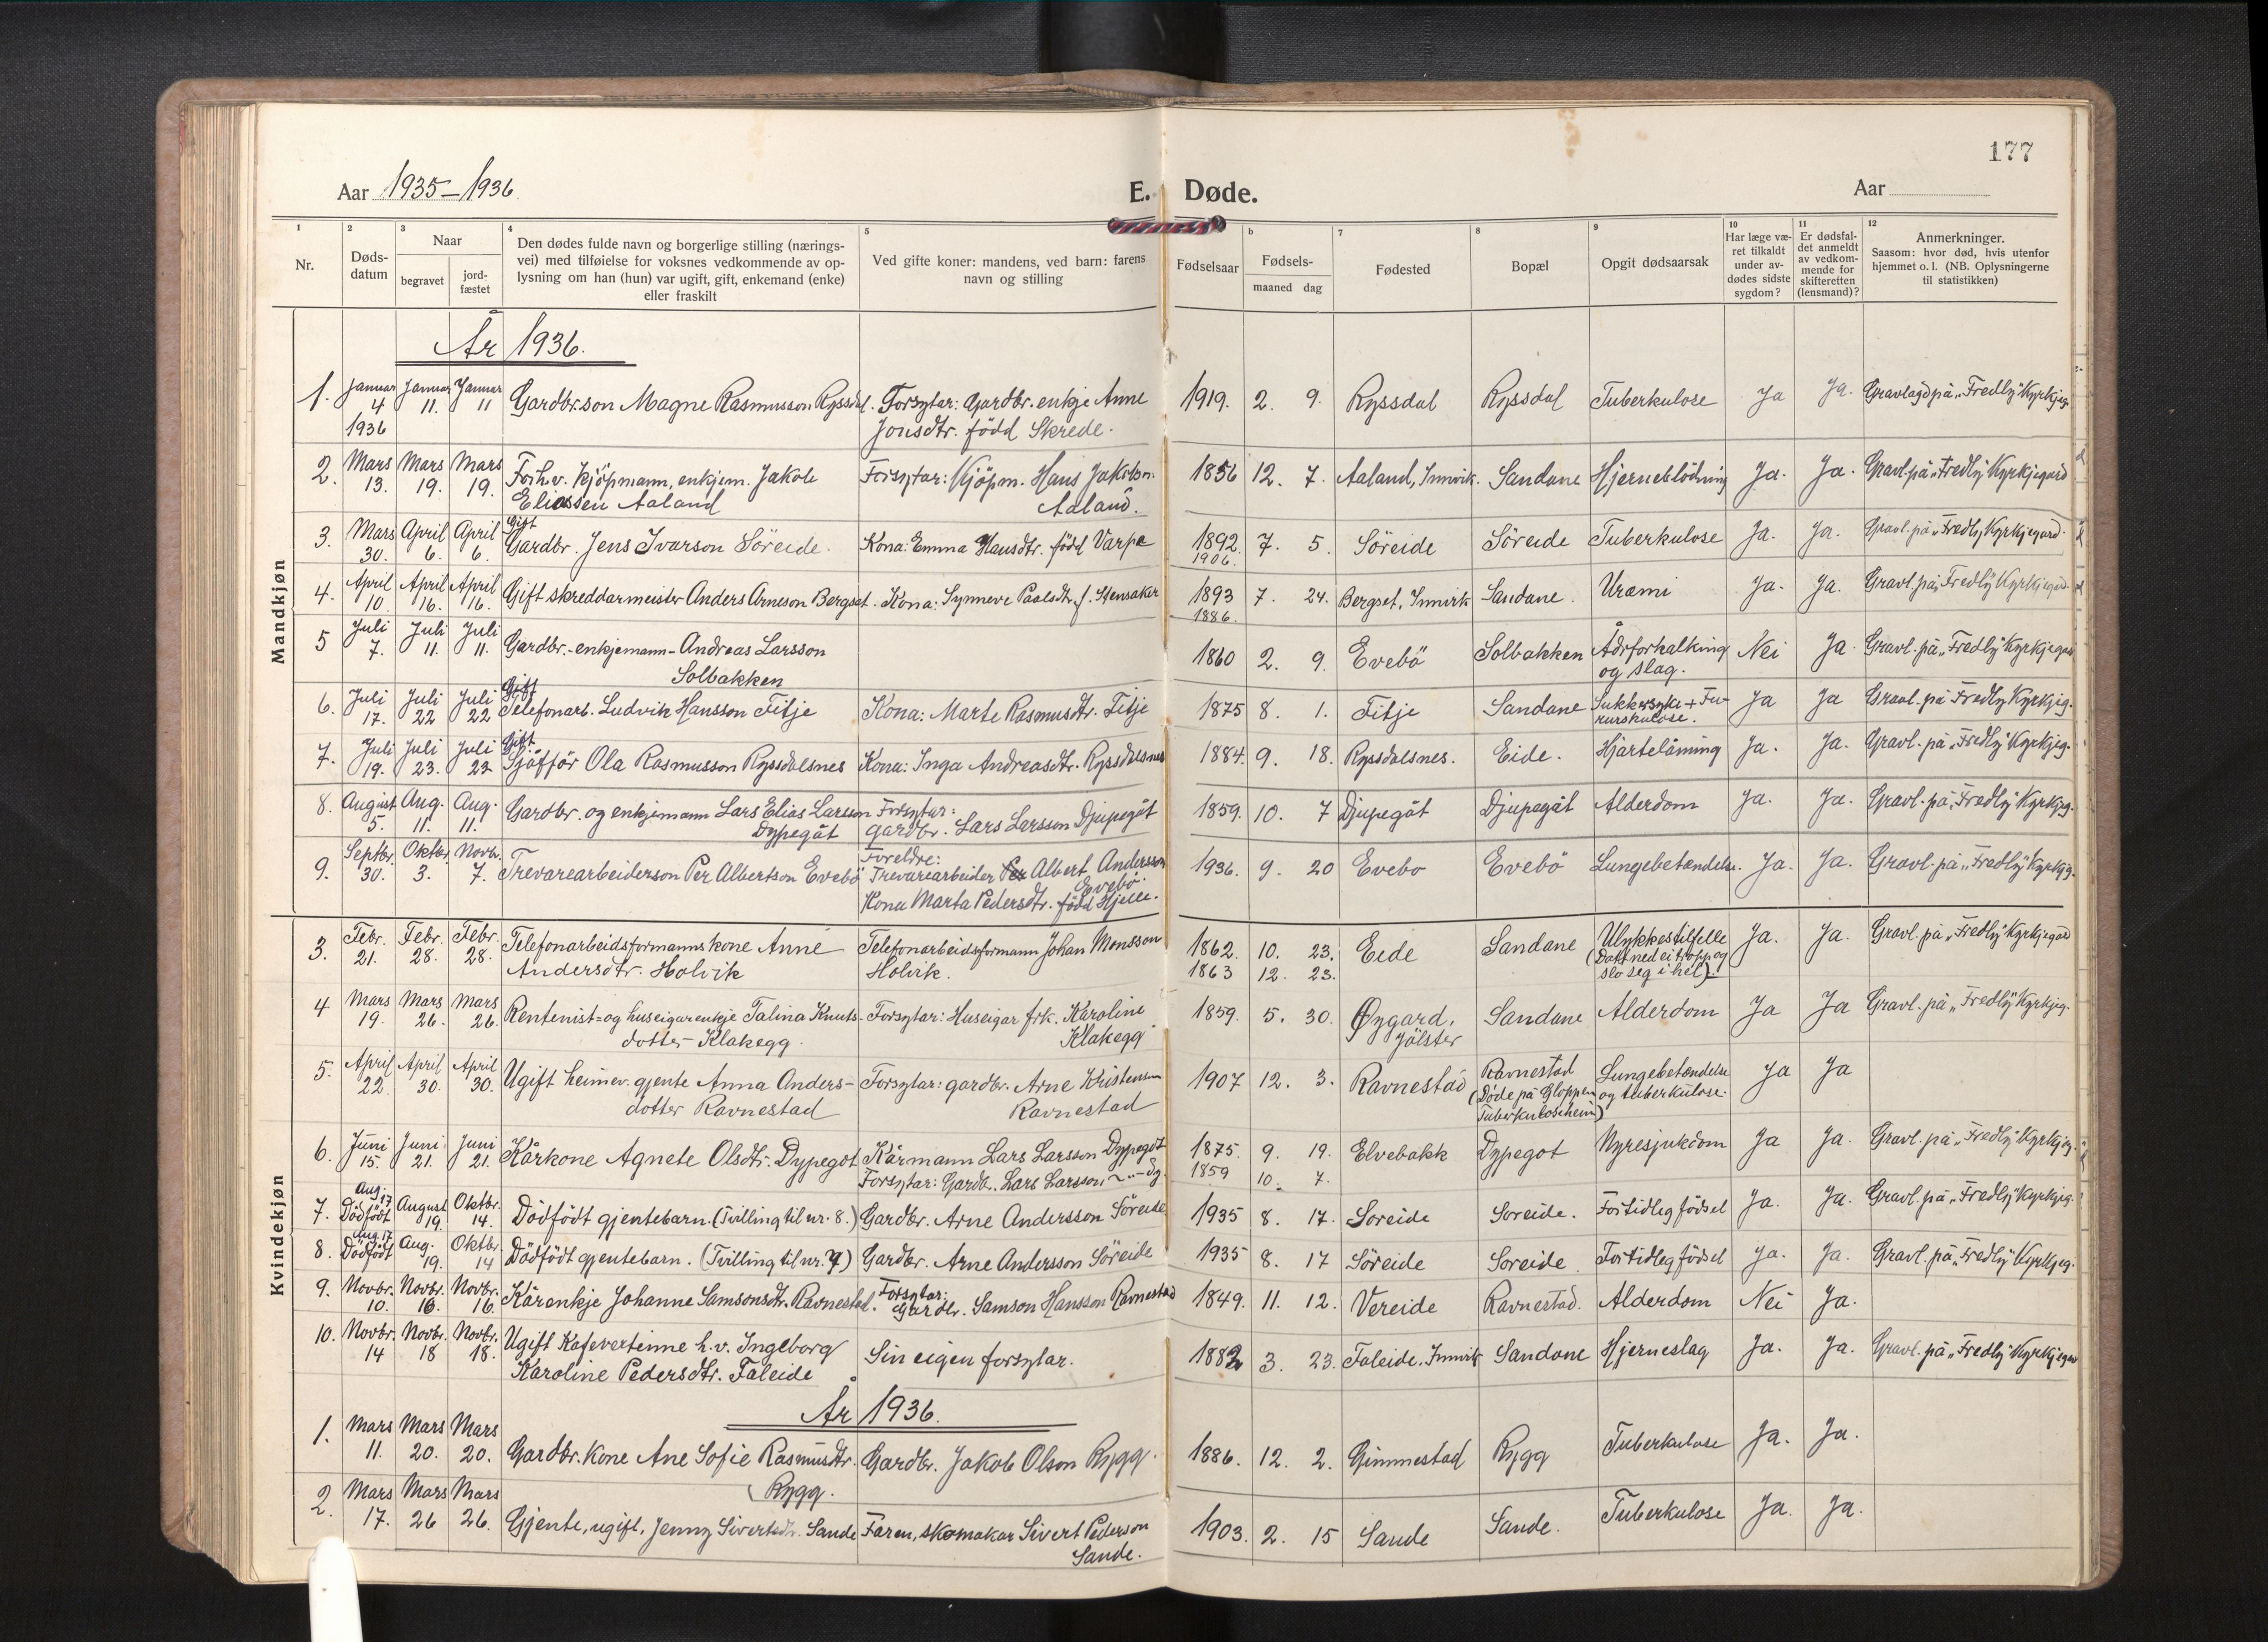 177
Aar 1935-1936
E. Døde.
Aar
1 2 3 4 5 6 7 8 9 10 11 12
Nr.
Døds-
datum
Naar
begravet
jord-
fæstet
Den dødes fulde navn og borgerlige stilling (nærings-
vei) med tilføielse for voksnes vedkommende av op-
lysning om han (hun) var ugift, gift, enkemand (enke)
eller fraskilt
Ved gifte koner: mandens, ved barn: farens
navn og stilling
Fødselsaar
Fødsels-
maaned dag
Fødested
Bopæl
Opgit dødsaarsak
Har læge væ-
ret tilkaldt
under av-
dødes sidste
sygdom?
Er dødsfal-
det anmeldt
av vedkom-
mende for
skifteretten
(lensmand)?
Anmerkninger.
Saasom: hvor død, hvis utenfor
hjemmet o. l. (NB. Oplysningerne
til statistikken)
Mandkjøn
År 1936.
1. Januar 4 1936 Januar 11. Januar 11 Gardbr.son Magne Rasmusson Ryssdal. Forsytar: Gardbr. enkje Anne
Jonsdtr. född Skrede. 1919. 2. 9. Ryssdal Ryssdal Tuberkulose Ja Ja. Gravlagd på "Fredly" Kyrkjeg.
2. Mars 13. Mars 19. Mars 19. Forhv. kjöpmann, enkjem. Jakob
Eliassen Aaland Forsytar: Kjöpm. Hans Jakobson
Aaland. 1856 12. 7. Aaland, Innvik. Sandane Hjerneblödning Ja. Ja. Gravl. på "Fredly" Kyrkjegard
3. Mars 30. April 6. April 6. Gift
Gardbr. Jens Ivarson Söreide. Kona: Emma Hansdtr. född Varpe 1892. 7. 5. Söreide Söreide Tuberkulose Ja. Ja. Gravl. på "Fredly" Kyrkjegard.
1906.
4. April 10. April 16. April 16. Gift skreddarmeister Anders Arneson Bergset. Kona: Synneve Paalsdtr. f. Stensaker 1893 7. 24. Bergset, Innvik Sandane. Uræmi Ja. Ja. Gravl. på "Fredly" Kyrkjegard.
1886.
5 Juli 7. Juli 11. Juli 11. Gardbr.-enkjemann- Andreas Larsson
Solbakken 1860 2. 9. Evebö Solbakken Ådrforkalking
og slag. Nei Ja. Gravl. på "Fredly" Kyrkjegard
6. Juli 17. Juli 22 Juli 22 Gift
Telefonarb. Ludvik Hansson Fitje Kona: Marte Rasmusdtr. Fitje 1875 8. 1. Fitje Sandane Sukkersyke + Fu-
runkulose. Ja Ja Gravl. på "Fredly" Kyrkjeg.
7. Juli 19. Juli 23. Juli 23 Gift.
Sjåfför Ola Rasmusson Ryssdalsnes Kona: Inga Andreasdtr. Ryssdalsnes 1884. 9. 18. Ryssdalsnes. Eide. Hjartelåming Ja. Ja. Gravl. på "Fredly" Kyrkjeg.
8. August 5. Aug. 11. Aug. 11. Gardbr. og enkjemann Lars Elias Larsson
Dypegåt Forsytar:
gardbr. Lars Larsson Djupegåt 1859. 10. 7 Djupegåt Djupegåt Alderdom Ja. Ja. Gravl. på "Fredly" Kyrkjeg.
9. Septbr. 30. Oktbr. 3. Novbr. 7. Trevarearbeiderson Per Albertson Evebö Foreldre:
Trevarearbeider Per Albert Andersson
Evebö.
Kona Marta Pedersdtr. född Hjelle. 1936. 9. 20 Evebo Evebö Lungebetændelse. Ja. Ja. Gravl. på "Fredly" Kyrkjeg.
Kvindekjøn
3. Febr. 21. Febr. 28. Febr. 28. Telefonarbeidsformanns kone Anne
Andersdtr. Holvik Telefonarbeidsformann Johan Monsson
Holvik. 1862. 10. 23. Eide Sandane Ulykkestilfelle
(Datt ned ei tropp og
slo seg i hel). Ja. Ja. Gravl. på "Fredly" Kyrkjegard
1863 12. 23.
4 Mars 19. Mars 26. Mars 26. Rentenist- og huseigarenkje Talina Knuts-
dotter Klakegg. Forsytar: Huseigar frk. Karoline
Klakegg 1859. 5. 30. Øygard,
Jölster Sandane Alderdom Ja Ja Gravl. på "Fredly" Kyrkjeg.
5. April 22. April 30. April 30. Ugift heimev. gjente Anna Anders-
dotter Ravnestad Forsytar: gardbr. Arne Kristensen
Ravnestad 1907 12. 3. Ravnestad Ravnestad
(Døde på Gloppen
Tuberkuloseheim) Lungebetændelse
og tuberkulose. Ja Ja
6. Juni 15. Juni 21. Juni 21. Kårkone Agnete Olsdtr. Dypegot Kårmann Lars Larsson Dypegot
Forsytar: Gardb. Lars Larsson Dy. 1875. 9. 19. Elvebakk Dypegot Nyresjukdom Ja Ja. Gravl. på "Fredly" Kyrkjeg.
1859 10. 7.
7. Aug. 17 Dödfödt August 19. Oktbr. 14. Dödfödt gjentebarn. (Tvilling til nr. 8.) Gardbr. Arne Andersson Söreide 1935 8. 17. Soreide Soreide. Fortidleg födsel Ja. Ja. Gravl. på "Fredly" Kyrkjeg.
8. Aug. 17. Dödfödt Aug. 19. Oktbr. 14 Dödfödt gjentebarn. (Tvilling til nr. 7) Gardbr. Arne Andersson Söreide 1935 8. 17 Söreide Soreide. Fortidleg födsel Ja. Ja. Gravl. på "Fredly" Kyrkjeg.
9. Novbr. 10. Novbr. 16. Novbr. 16. Kårenkje Johanne Samsonsdtr. Ravnestad. Forsytar:
Gardbr. Samson Hansson Ravnestad 1849. 11. 12. Vereide Ravnestad. Alderdom Nei Ja.
10. Novbr. 14 Novbr. 18 Novbr. 18. Ugift Kafevertinne h.v. Ingeborg
Karoline Pedersdtr. Faleide Sin eigen forsytar. 1882 3. 23. Faleide. Innvik Sandane Hjerneslag Ja. Ja. Gravl. på "Fredly" Kyrkjegard
År 1936.
1. Mars 11. Mars 20. Mars 20. Gardbr. Kone Ane Sofie Rasmusdtr.
Rygg. Gardbr. Jakob Olson Rygg. 1886. 12. 2. Gimmestad Rygg Tuberkulose Ja. Ja.
2. Mars 17. Mars 26 Mars 26. Gjente, ugift, Jenny Sivertsdtr. Sande Faren, skomakar Sivert Pederson
Sande. 1903. 2. 15 Sande Sande. Tuberkulose Ja. Ja.